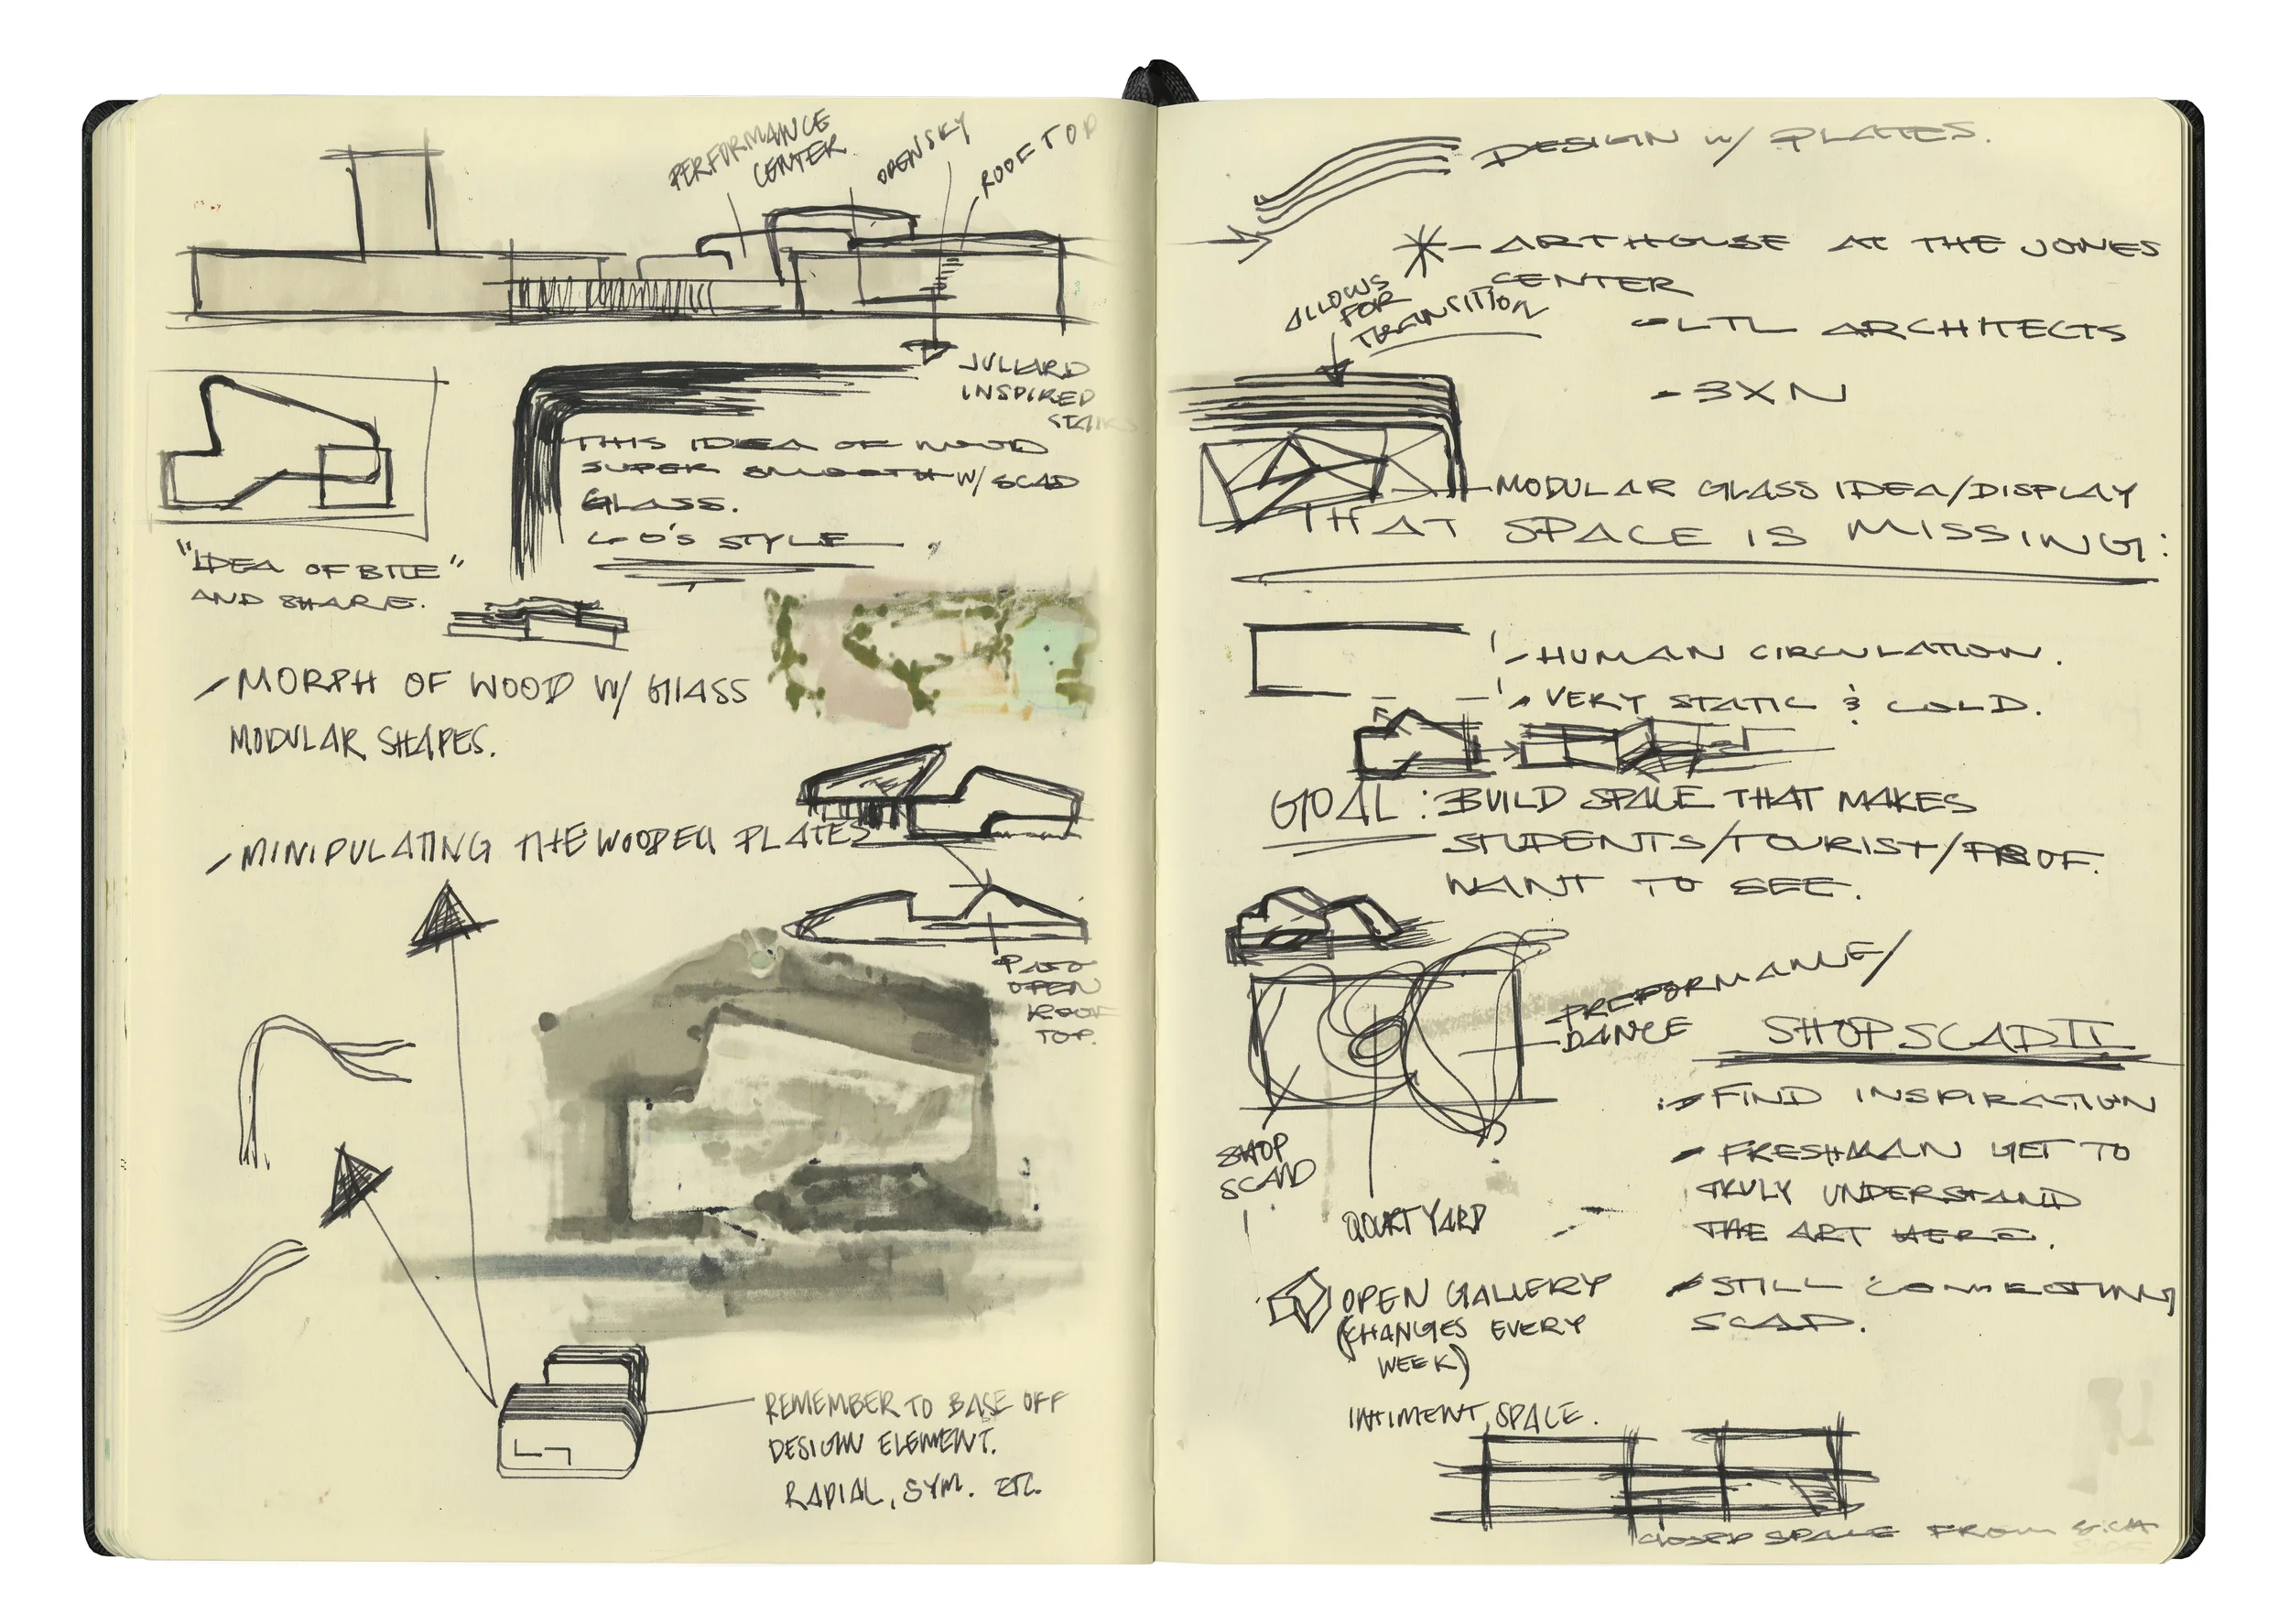 PERFORMANCE
CENTER
OPEN SKY
ROOF TOP
JULLARD
INSPIRED
STAIRS
THIS IDEA OF WOOD
SUPER SMOOTH W/ SCAD
GLASS.
60'S STYLE
"IDEA OF BITE"
AND SHARE.
-MORPH OF WOOD W/ GLASS
MODULAR SHAPES.
-MINIPULATING THE WOODEN PLATES
OPEN
ROOF
TOP.
REMEMBER TO BASE OFF
DESIGN ELEMENT.
RADIAL, SYM. ETC.
DESIGN W/ PLATES.
- ARTHOUSE AT THE JONES
CENTER
-LTL ARCHITECTS
-3XN
ALLOWS
FOR
TRANSITION
MODULAR GLASS IDEA/DISPLAY
THAT SPACE IS MISSING:
- HUMAN CIRCULATION.
- VERY STATIC & COLD.
GOAL: BUILD SPACE THAT MAKES
STUDENTS/TOURIST/PROF.
WANT TO SEE.
PREFORMANCE/
DANCE
SHOP
SCAD
QOURTYARD
OPEN GALLERY
(CHANGES EVERY
WEEK)
INTIMENT SPACE.
SHOP SCAD II
- FIND INSPIRATION
- FRESHMAN GET TO
TRULY UNDERSTAND
THE ART HERE.
- STILL CONNECTING
SCAD.
CLOSED SPACE FROM
SIDE